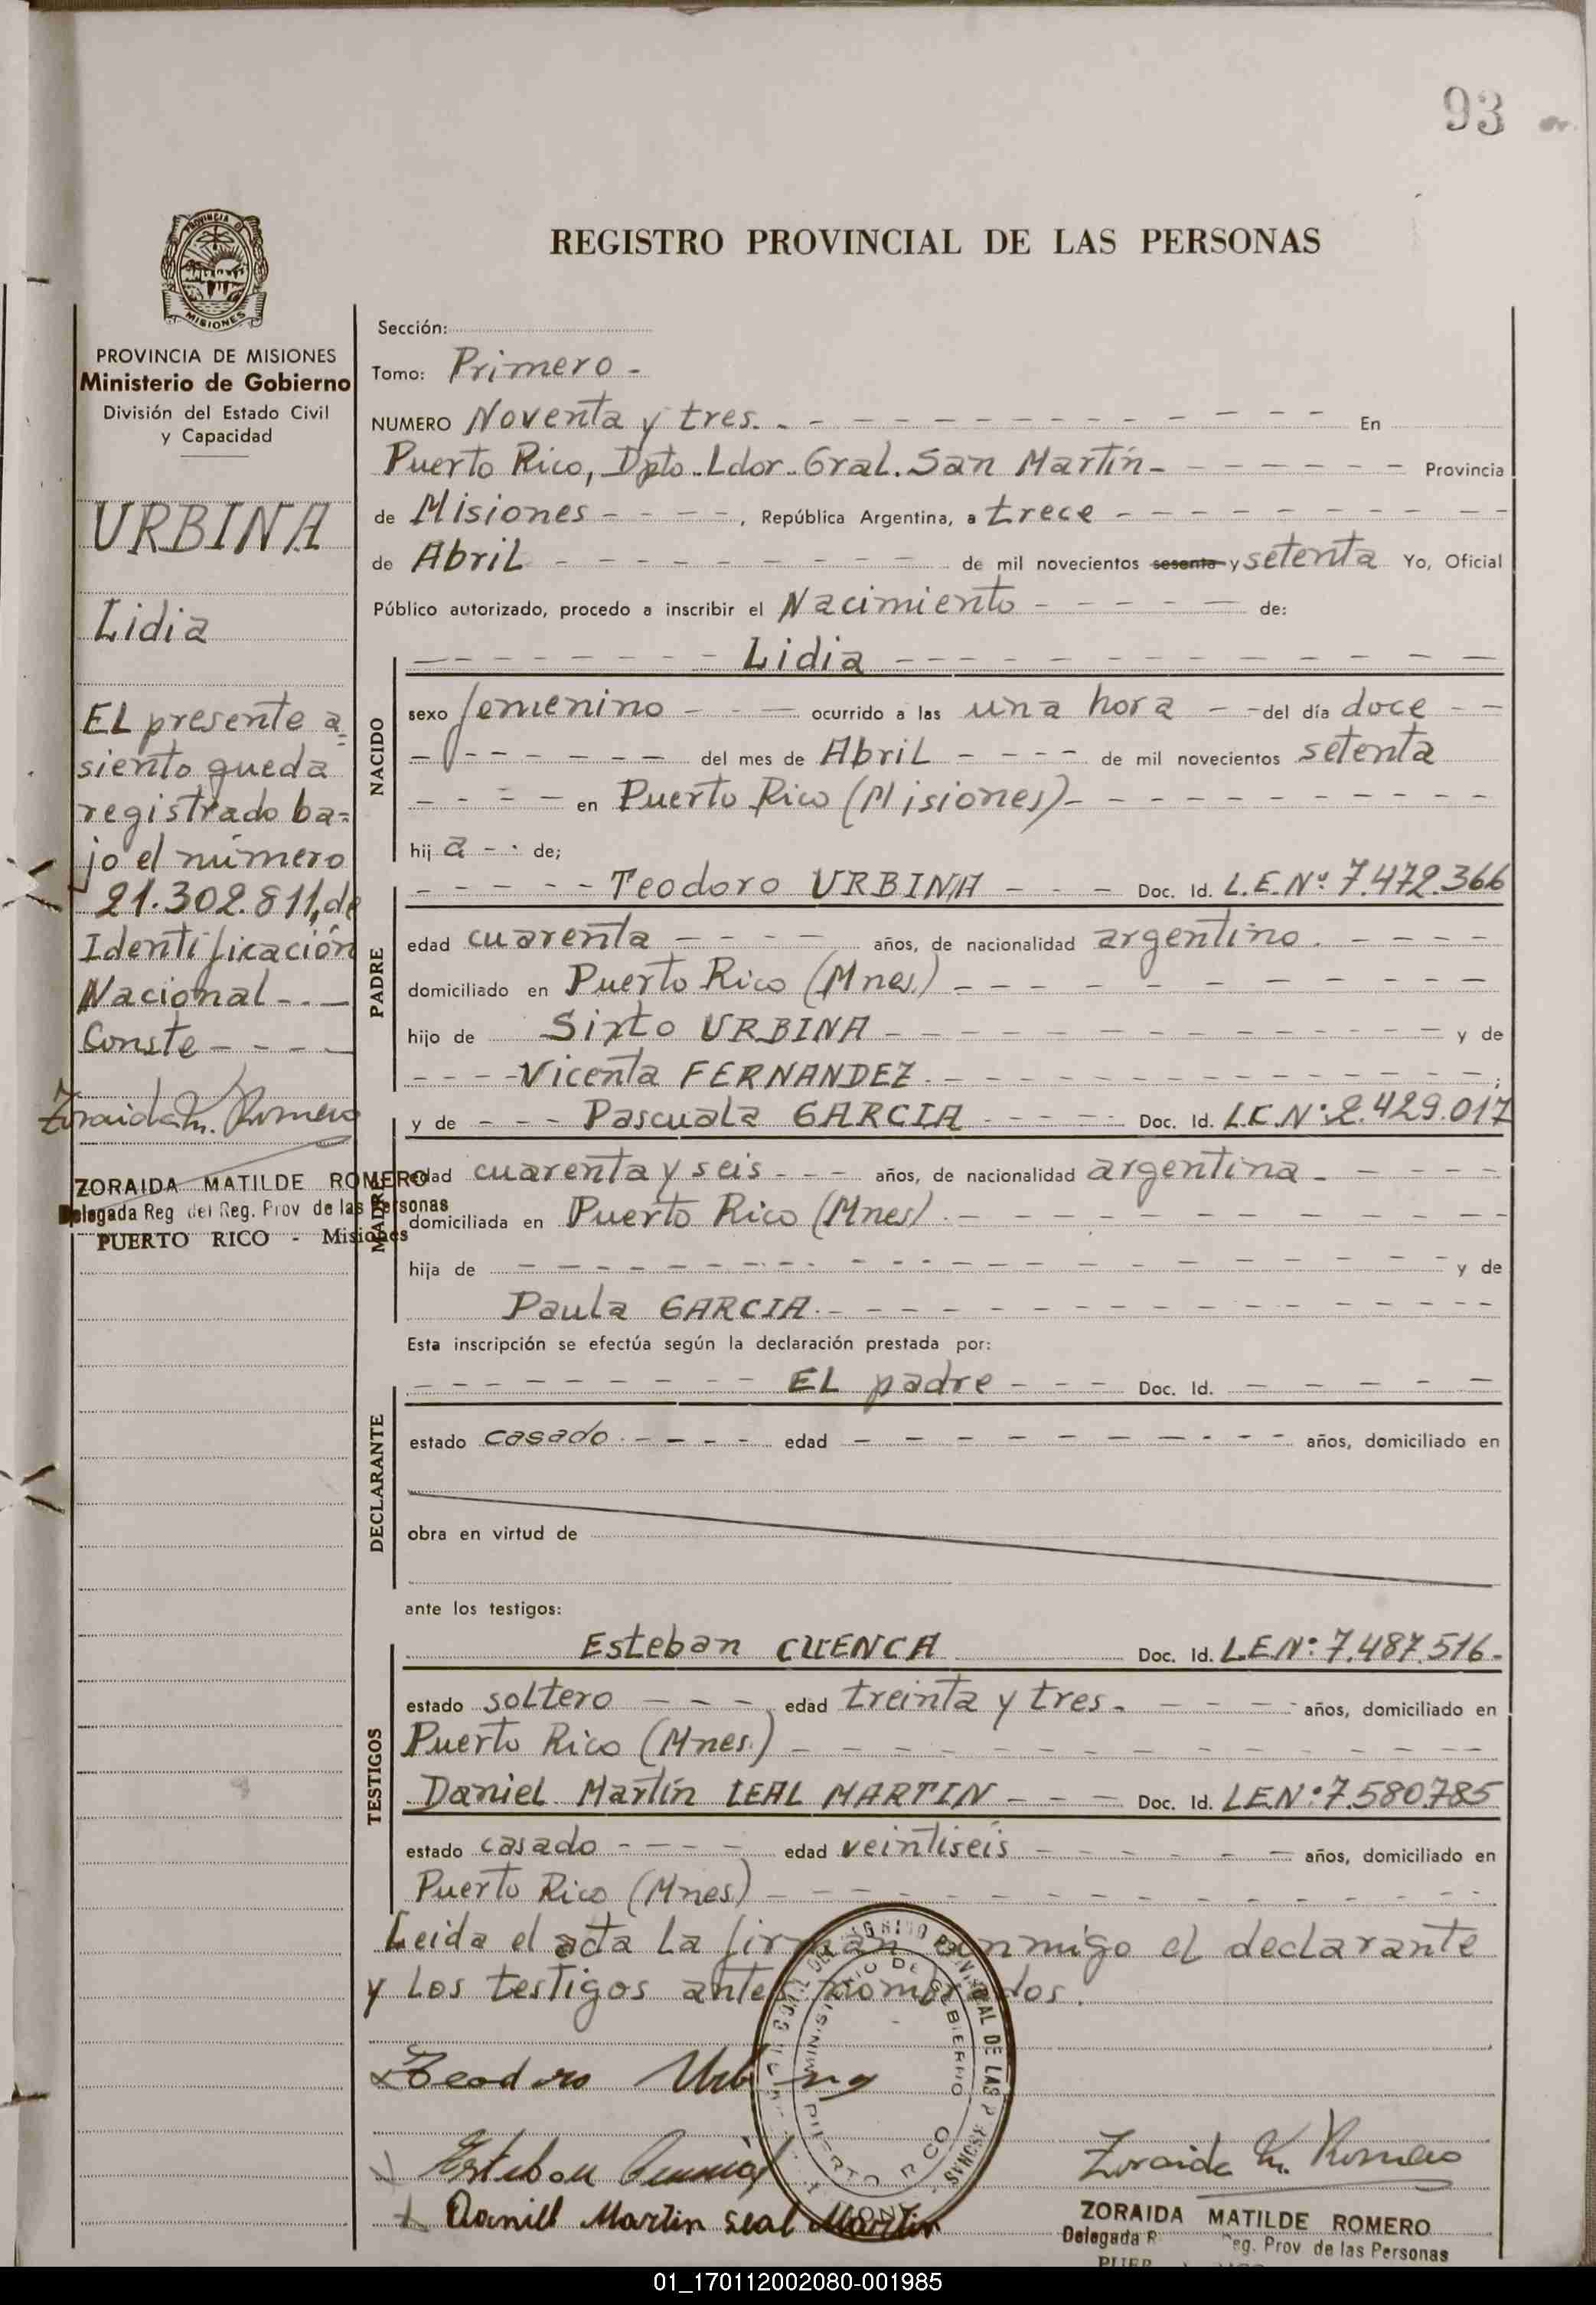 93
REGISTRO PROVINCIAL DE LAS PERSONAS
PROVINCIA DE MISIONES
Ministerio de Gobierno
División del Estado Civil
y Capacidad
URBINA
Lidia
EL presente a=
siento queda
registrado ba=
jo el número
21.302.811, de
Identificación
Nacional - . -
Conste - - - -
Zoraida M. Romero
ZORAIDA MATILDE ROMERO
Delegada Reg del Reg. Prov de las Personas
PUERTO RICO - Misiones
Sección:
Tomo: Primero -
NUMERO Noventa y tres. - En
Puerto Rico, Dpto. Ldor. Gral. San Martín - Provincia
de Misiones - - - -, República Argentina, a trece
de Abril - de mil novecientos sesenta y setenta Yo, Oficial
Público autorizado, procedo a inscribir el Nacimiento - de:
NACIDO
Lidia
sexo femenino - ocurrido a las una hora - del día doce
del mes de Abril - de mil novecientos setenta
en Puerto Rico (Misiones) -
hij a - de;
PADRE
Teodoro URBINA - Doc. Id. L.E.Nº 7.472.366
edad cuarenta - años, de nacionalidad argentino. -
domiciliado en Puerto Rico (Mnes.) -
hijo de Sixto URBINA - y de
Vicenta FERNANDEZ. - ;
MADRE
y de - Pascuala GARCIA - Doc. Id. L.C.Nº 2.429.017
edad cuarenta y seis - años, de nacionalidad argentina -
domiciliada en Puerto Rico (Mnes) -
hija de - y de
Paula GARCIA. -
Esta inscripción se efectúa según la declaración prestada por:
DECLARANTE
EL padre - Doc. Id. -
estado casado - edad - años, domiciliado en
obra en virtud de
ante los testigos:
TESTIGOS
Esteban CUENCA Doc. Id. L.E.Nº 7.487.516 -
estado soltero - edad treinta y tres. - años, domiciliado en
Puerto Rico (Mnes.) -
Daniel Martín LEAL MARTIN - Doc. Id. L.E.Nº 7.580.785
estado casado - edad veintiseis - años, domiciliado en
Puerto Rico (Mnes) -
Leida el acta la firman conmigo el declarante
y los testigos antes nombrados.
Teodoro Urbina
Esteban
Daniel Martin Leal Martin
Zoraida M. Romero
ZORAIDA MATILDE ROMERO
Delegada R eg. Prov de las Personas
01_170112002080-001985